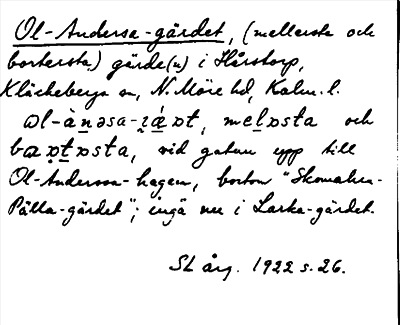 Ol-Andersa-gärdet, (mellersta och
bortersta) gärde(n) i Hårstorp,
Kläckeberga sn, N. Möre hd, Kalm. l.
ɷl-ànəsa- och
vid gatan upp till
Ol-Andersa-hagen, bortom "Skomakar-
Pälla-gärdet"; ingå nu i Larka-gärdet.
SL årg. 1922 s. 26.